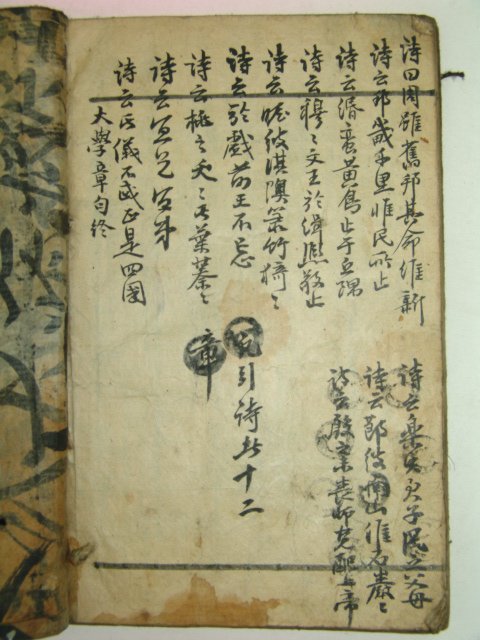 詩曰周雖舊邦其命維新
詩云邦畿千里惟民所止
詩云緡蠻黃鳥止于丘隅
詩云穆〻文王於緝熙敬止
詩云瞻彼淇澳菉竹猗〻
詩云於戲前王不忘
詩云桃之夭〻其葉蓁〻
詩云宜兄宜弟
詩云其儀不忒正是四國
大學章句終
詩云樂只君子民之父母
詩云節彼南山維石巖〻
詩云殷之未喪師克配上帝
引詩此十二
章